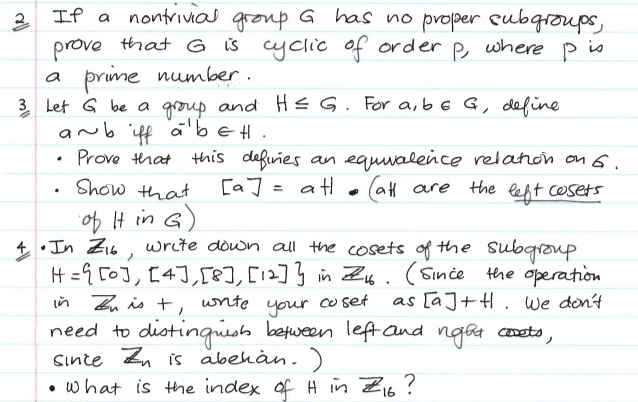 2. If a nontrivial group G has no proper subgroups,
prove that G is cyclic of order p, where p is
a prime number.
3. Let G be a group and H ≤ G. For a, b ∈ G, define
a ~ b iff a⁻¹b ∈ H.
• Prove that this defines an equivalence relation on G.
• Show that [a] = aH • (aH are the left cosets
of H in G)
4. • In ℤ₁₆, write down all the cosets of the subgroup
H = {[0], [4], [8], [12]} in ℤ₁₆. (Since the operation
in ℤₙ is +, write your coset as [a]+H. We don't
need to distinguish between left and right cosets,
since ℤₙ is abelian.)
• What is the index of H in ℤ₁₆?